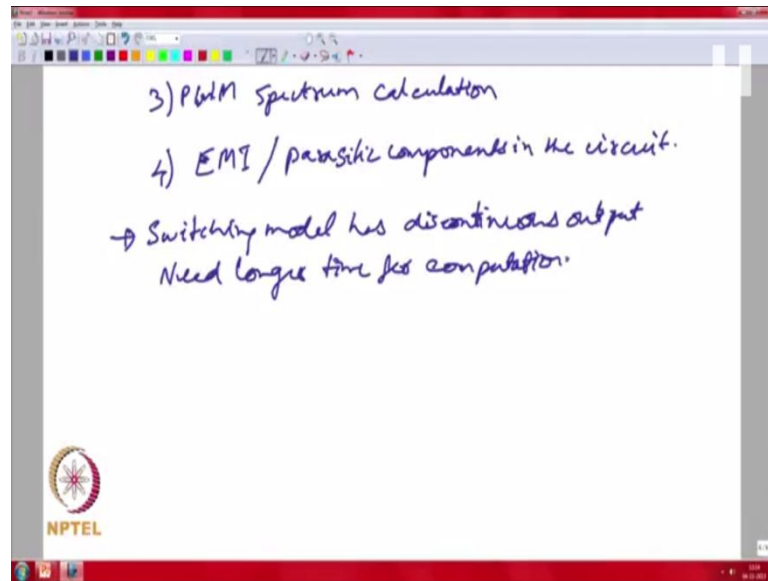 3) PWM spectrum calculation
4) EMI / parasitic components in the circuit.
→ Switching model has discontinuous output
Need longer time for computation.
NPTEL